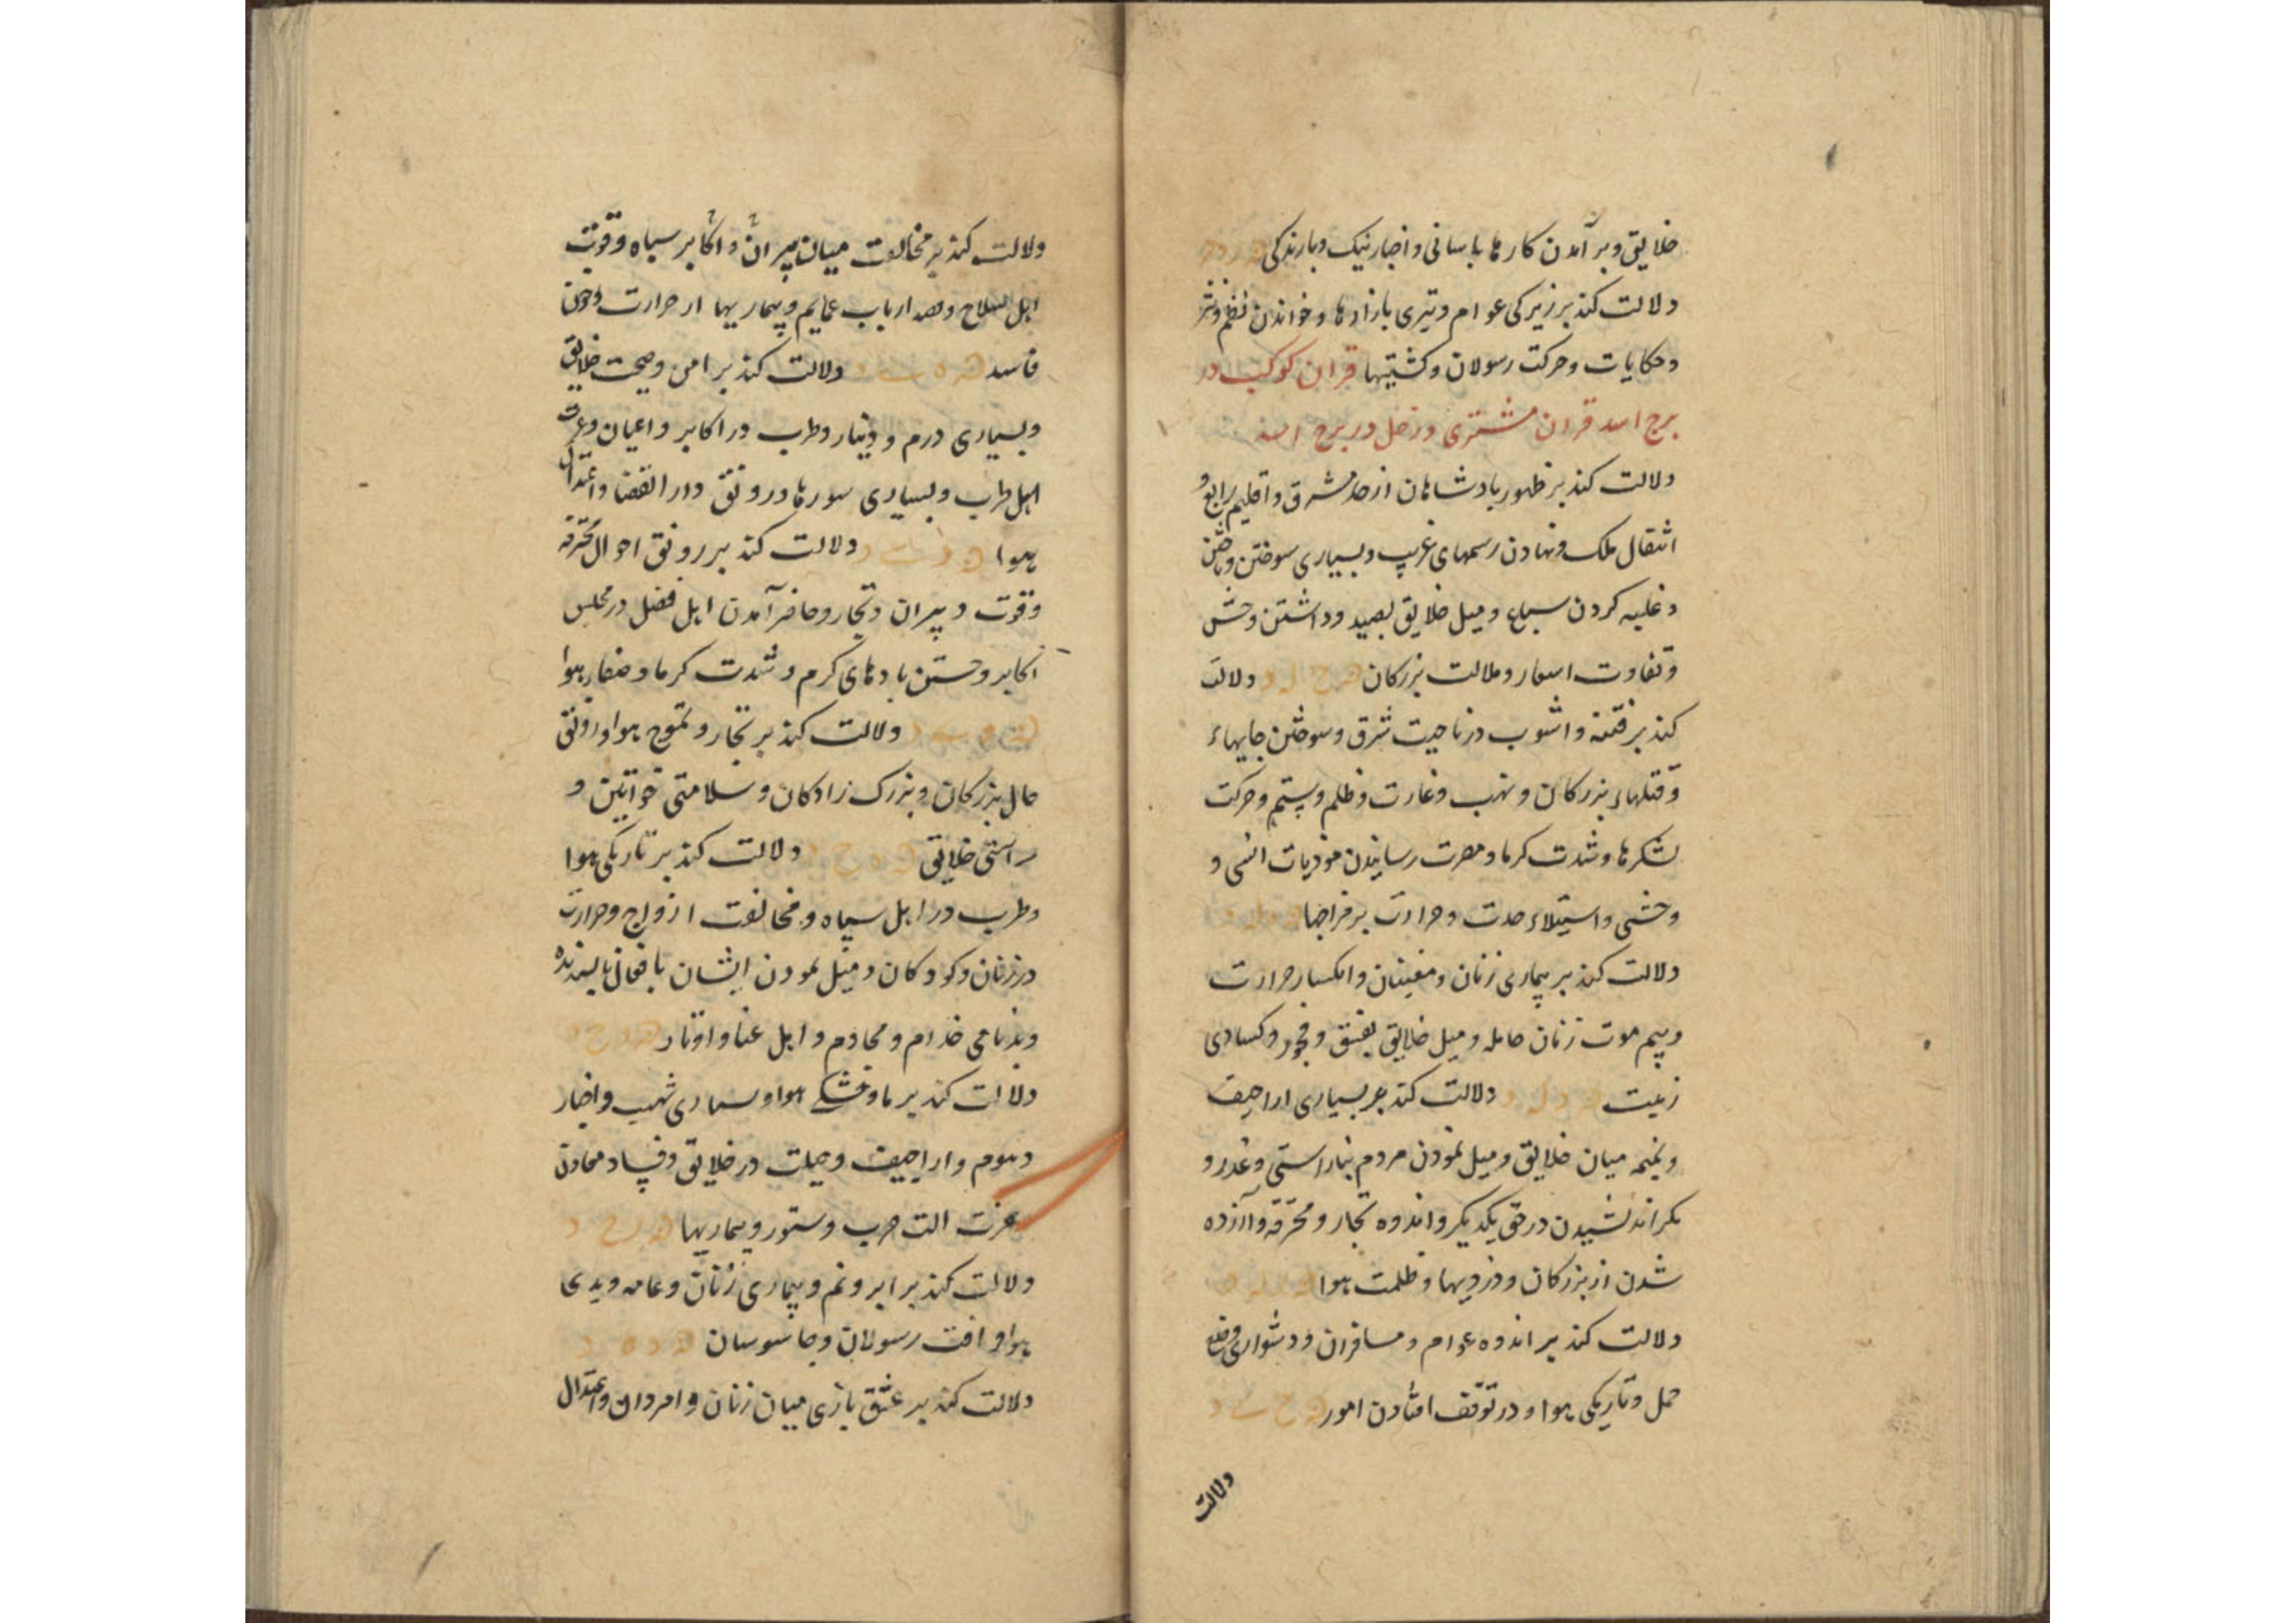 خلایق و بر آمدن کارها باسانی و اخبار نیک و بارندکی
دلالت کند بر زیرکی عوام و تیزی بازارها و خواندن نظم و نثر
و حکایات و حرکت رسولان و کشتیها قران کوکب در
برج اسد قران مشتری و زحل در برج اسد
دلالت کند بر ظهور پادشاهان از حد مشرق و اقلیم رابع و
انتقال ملک و نهادن رسمهای غریب و بسیاری سوختن و
و غلبه کردن سباع و میل خلایق بصید و داشتن وحش
و تفاوت اسعار و ملالت بزرکان دلالت
کند بر فتنه و اشوب در ناحیت شرق و سوختن جایهاء
و قتلهاء بزرکان و نهب و غارت و ظلم و ستم و حرکت
لشکرها و شدت کرما و مضرت رسانیدن موذیات انسی و
وحشی و استیلاء حدت و حرارت بر مزاجها
دلالت کند بر بیماری زنان و مغنیان و انکسار حرارت
و بیم موت زنان حامله و میل خلایق بفسق و فجور و کسادی
زینت دلالت کند بر بسیاری اراجیف
و نمیمه میان خلایق و میل نمودن مردم بناراستی و غدر و
مکر اندیشیدن در حق یکدیکر و اندوه تجار و محترفه و آزرده
شدن از بزرکان و دزدیها و ظلمت هوا
دلالت کند بر اندوه عوام و مسافران و دشواری وضع
حمل و تاریکی هوا و در توقف افتادن امور
دلالت
دلالت کند بر مخالفت میان پیران و اکابر سپاه و قوت
اهل سلاح و ارباب عمایم و بیماریها از حرارت و خون
فاسد دلالت کند بر امن و صحت خلایق
و بسیاری درم و دینار و طرب در اکابر و اعیان و عزت
اهل طرب و بسیاری سورها و رونق دار القضا و اعتدال
هوا دلالت کند بر رونق احوال محترفه
و قوت دبیران و تجار و حاضر آمدن اهل فضل در مجلس
اکابر و جستن بادهای کرم و شدت کرما و صفاء هوا
دلالت کند بر تجار و تموج هوا و رونق
حال بزرکان و بزرک زادکان و سلامتی خواتین و
راستی خلایق دلالت کند بر تاریکی هوا
و طرب در اهل سپاه و مخالفت ازواج و حرارت
در زنان و کودکان و میل نمودن ایشان بافعال ناپسندیده
و بدنامی خدام و مخادم و اهل غنا و اوتار
دلالت کند بر خشکی هوا و بسیاری شهب و اخبار
و هموم و اراجیف و حیلت در خلایق و فساد معادن
عزت الت حرب و ستور و بیماریها
دلالت کند بر ابر و نم و بیماری زنان و عامه و بدی
هوا و افت رسولان و جاسوسان
دلالت کند بر عشق بازی میان زنان و امردان و اعتدال